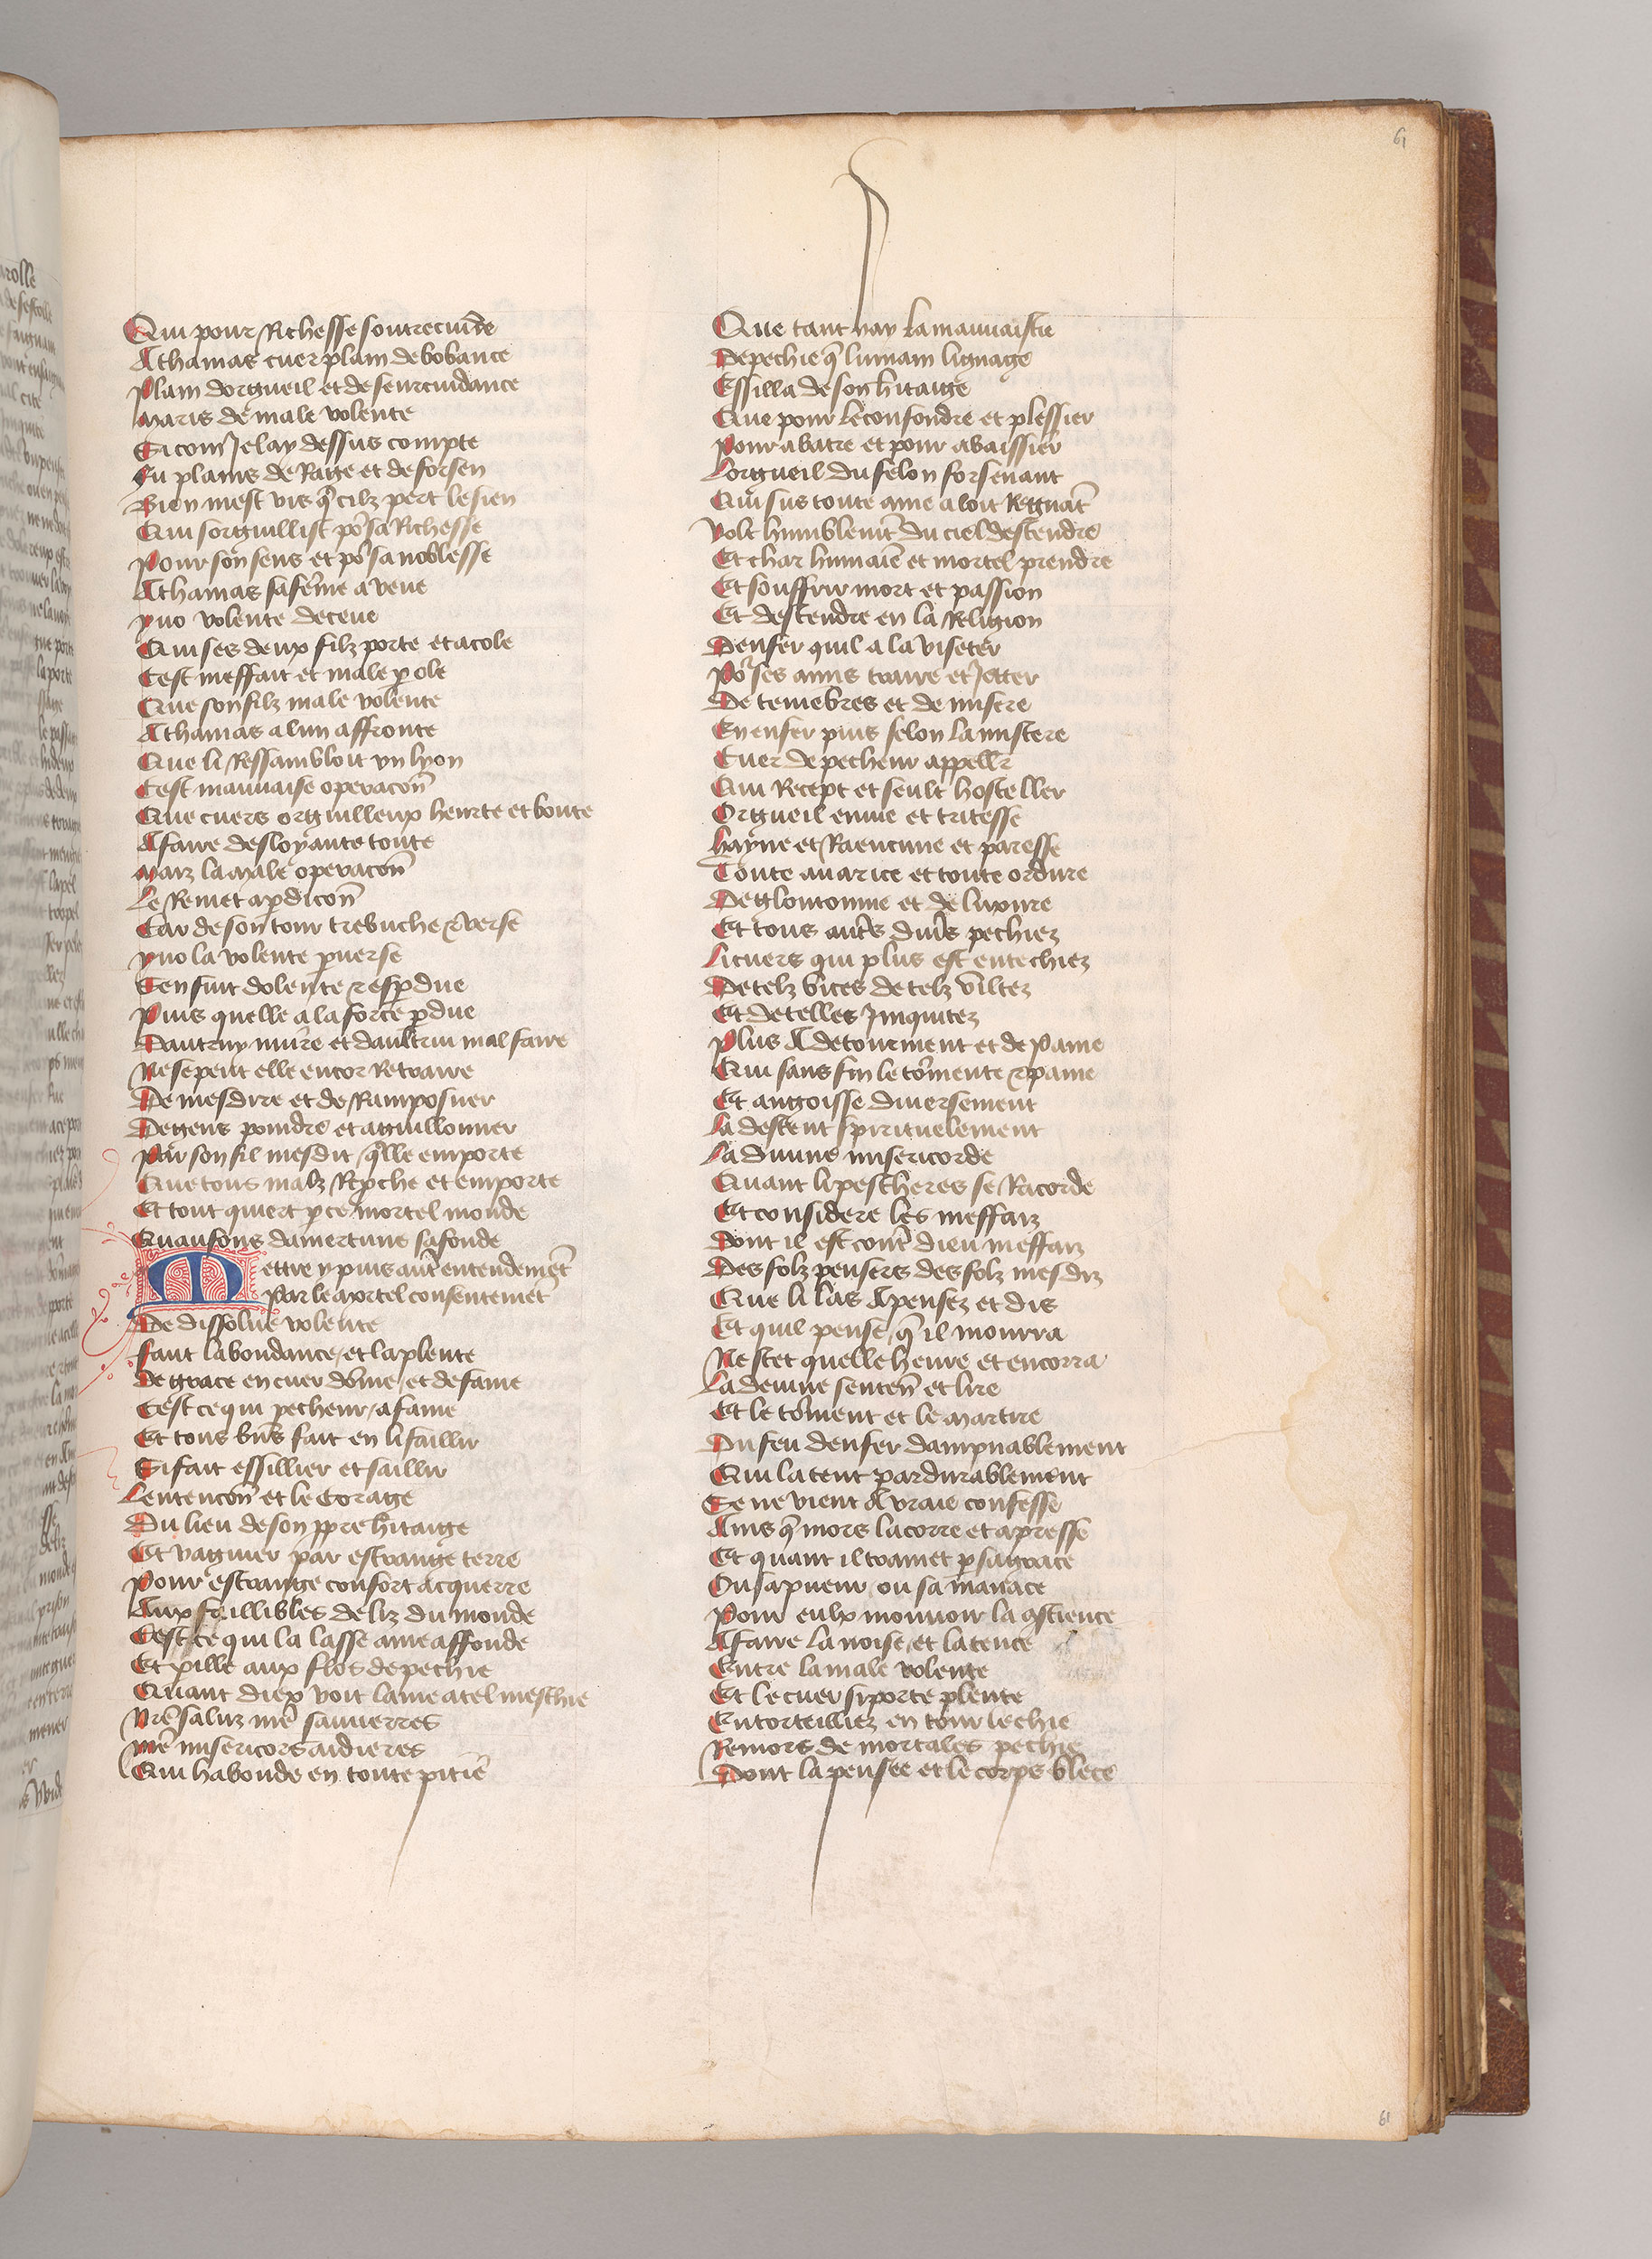 61
Qui pour Richesse soutrecuide
Athamas cuer plain de bobance
Plain dorgueil et de seurcuidance
Maris de male volente
Si com Je lay dessus compte
Fu plains de Rage et de forsen
Bien mest vis q̄ cilz pert le sien
Qui sorguillist por sa Richesse
Pour son sens et por sa noblesse
Athamas sa feme a veue
yno volente deceue
Qui ses deux filz porte et acole
Cest meffait et male p ole
Que son filz male volente
Athamas a lun affronte
Que li Ressambloit vn lyon
Cest mauuaise operacon̄
Que cuers orguilleux heurte et boute
A faire desloyaute toute
Maiz la male operacon̄
Le Remet a pdicon̄
Car de son tour trebuche & verse
yno la volente puerse
Sen fuit dolente & espdue
Puis quelle a la force pdue
Dautruy nuire et daultrui mal faire
Ne se peut elle encor Retraire
De mesdire et de Ramposner
De gens poindre et aguillonner
Par son fil mesdit q̄lle emporte
Que tous malz Rpche et emporte
Et tout quiert p ce mortel monde
Quaufons damertune safonde
Mettre y puis aut̄ entendemēt
Par le mortel consentemēt
De dissolue volente
Faut labondance et la plente
De grace en cuer dōme et de fame
Cest ce qui pecheur afame
Et tous bn̄s fait en li faillir
Si fait essillier et saillir
Lentencon̄ et le Corage
Du lieu de son ppre h̄itaige
Et vaguier par estrange terre
Pour estrange confort acquerre
Aux faillibles deliz du monde
Cest ce qui la lasse ame affonde
Et pille aux flos de pechie
Quant diex voit lame a tel meschie
Vrē saluz mē sauuerres
Mē misericors aidieres
Qui habonde en toute pitie
Que tant hay la mauuaistie
De pechie q̄ lumain lignage
Essilla de son h̄itaige
Que pour le confondre et plessier
Pour abatre et pour abaissier
Lorgueil du felon forsenant
Qui sus toute ame aloit Regnāt
Volt humblemt̄ du ciel descendre
Et char humaīe et mortel prendre
Et souffrir mort et passion
Et descendre en la Religion
Denfer quil a la viseter
Por ses amis traire et Jetter
De tenebres et de misere
En enfer puis selon la mistere
Cuer de pecheur appeller
Qui Recept et seult hosteller
Orgueil enuie et tritesse
Hayne et Raencune et paresse
Toute auarice et toute ordure
De gloutonnie et de luxure
Et tous aut̄s diūs pechiez
Li cuers qui plus est entechiez
De telz vices de telz viltez
Et de telles Iniquitez
Plus A de tourment et de paine
Qui sans fin le tōrmente & paine
Et angoisse diuersement
La descent spirituelement
La diuine misericorde
Quant li pescheres se Racorde
Et considere les meffaiz
Dont il est contr̄ dieu meffaiz
Des folz pensers des folz mesdiz
Que li las A pensez et dis
Et quil pense q̄ il mourra
Ne scet quelle heure et encorra
La deuine senten̄ et lire
Et le tōrment et le martire
Du feu denfer dampnablement
Qui latent pardurablement
Se ne vient A vraie confesse
Ains q̄ mors lacorre et apresse
Et quant il tramet p sa grace
Ou sa pueur ou sa manace
Pour eulx mouuoir la gscience
A faire la noise et la tence
Entre la male volente
Et le cuer si porte plente
Entorteilliez en tour le chie
Remors de mortales pechie
Dont la pensee et le corps blece
61